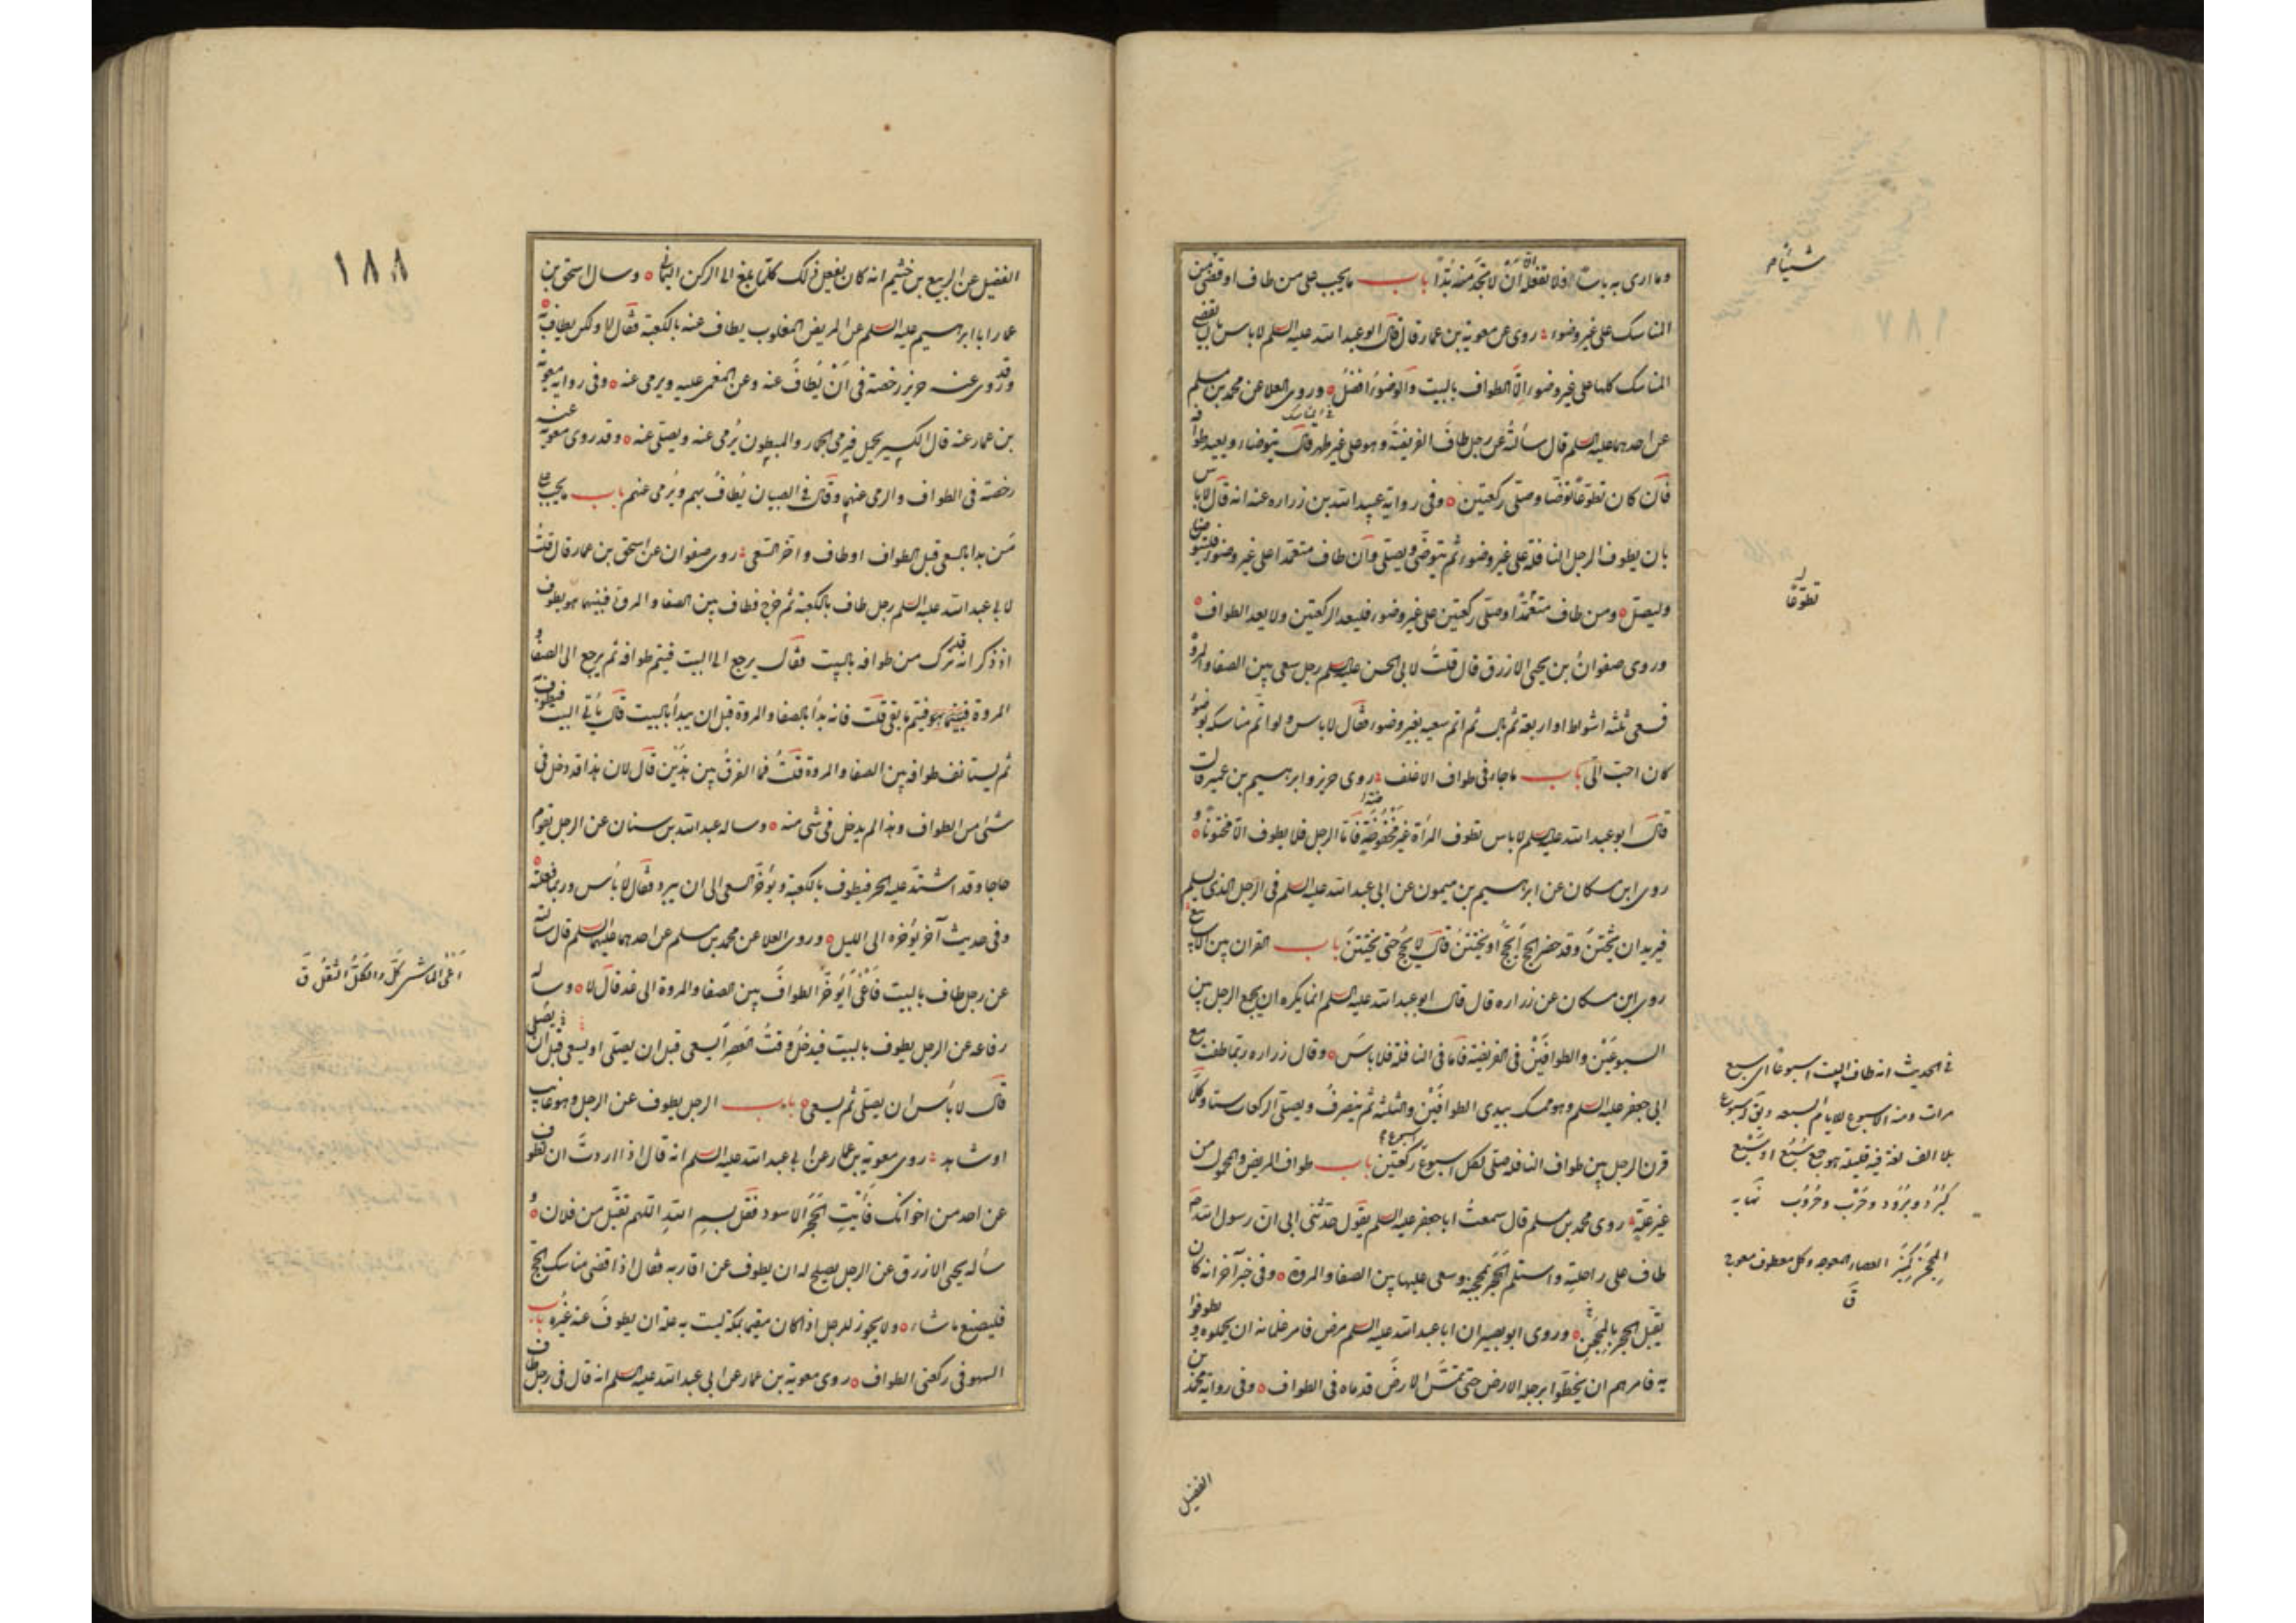 وما ارى به باسا فلا تفعله الا ان لا تجد منه بدّا باب ما يجب على من طاف او قضى شيئا من
المناسك على غير وضوء روى عن معوية بن عمار قال قال ابو عبد الله عليه السلم لا باس بان يقضى
المناسك كلها على غير وضوء الّا الطواف بالبيت والوضوء افضلُ وروى العلا عن محمد بن مسلم
عن احدهما عليه السلم قال سألتُه عن رجل طافَ الفريضةَ وهو على غير طهر قال يتوضاء ويعيد طوافه
فان كان تطوّعًا توضّا وصلّى ركعتين وفى رواية عبيد الله بن زراره عنه انه قال لا باس
بان يطوف الرجل النافلة على غير وضوء ثم يتوضّى ويصلى وان طاف متعمّدا على غير وضوء فليتوضا
وليصل ومن طاف متعمّدًا وصلّى ركعتين على غير وضوء فليعد الركعتين ولا يعد الطواف
وروى صفوانُ بن يحيى الازرق قال قلتُ لابى الحسن عليه السلم رجل سعى بين الصفا والمروة
فسعى ثلثه اشواط او اربعة ثم بال ثم اتم سعيه بغير وضوء فقال لا باس ولو اتم مناسكه بوضوء
كان احبّ الىّ باب ما جاء فى طواف الاغلف روى حريز وابرهيم بن عمير قالت
قال ابو عبد الله عليه السلم لا باس تطوف المرأة غير مخفوضة فامّا الرجل فلا يطوف الّا مختونًا و
روى ابن مسكان عن ابرهيم بن ميمون عن ابى عبد الله عليه السلم فى الرجل الذى يسلم
فيريد ان يختتن وقد حضر الحج أيحجّ او يختتن قال لا يحج حتى يختتنَ باب القران بين الاسابيع
روى ابن مسكان عن زراره قال قال ابو عبد الله عليه السلم انما يكره ان يجمع الرجل بين
السبوعَيْن والطوافَيْن فى الفريضة فامّا فى النافلة فلا باسَ وقال زراره ربّما طفت مع
ابى جعفر عليه السلم وهو ممسك بيدى الطوافَيْن والثلثة ثم ينصرفُ ويصلّى الركعات ستا وكلّما
قرن الرجل بين طواف النافله صلّى لكل اسبوع ركعتين باب طواف المريض والمحمول من
غير علّة روى محمد بن مسلم قال سمعتُ ابا جعفر عليه السلم يقول حدّثنى ابى انّ رسول الله ص
طاف على راحلته واستلم الحجَر بمحجنه وسعى عليها بين الصفا والمروة وفى خبر آخر انه كان
يقبّل الحجر بالمحجن وروى ابو بصير ان ابا عبد الله عليه السلم مرض فامر غلمانه ان يحملوه ويطوفوا
به فامرهم ان يخطّوا برجله الارض حتى تمسّ الارضَ قدماه فى الطواف وفى رواية محمد بن
الفضيل
شيئا م
تطوّعًا
فى الحديث انه طاف بالبيت اسبوعًا اى سبع
مرات ومنه الاسبوع للايام السبعه ويق له سبوع
بلا الف لغة فيه قليلة هو جمع سُبُع او سَبْع
كبُرْد وبُرُود وضَرْب وضُرُوب نهايه
المِحْجَن كمِنْبَر العصاء المعوجه وكل معطوف معوج
ق
١٨٨
الفضيل عن الربيع بن خثيم انه كان يفعل ذلك كلّما بلغ الى الركن اليمانى وسال اسحق بن
عمار ابا ابرهيم عليه السلم عن المريض المغلوب يطاف عنه بالكعبة فقال لا ولكن يطاف به
وقد روى عنه حريز رخصة فى اَنْ يُطافَ عنه وعن المغمى عليه ويرمى عنه وفى رواية معوية
بن عمار عنه قال الكسير يحمل فيرمى الجمار والمبطون يُرمى عنه ويصلّى عنه وقد روى معوية عنه
رخصة فى الطواف والرمى عنهما وقال فى الصبيان يُطافُ بهم ويُرمى عنهم باب ما يجب على
مَن بدا بالسعى قبل الطواف او طاف واخّر السّعى روى صفوان عن اسحق بن عمار قال قلتُ
لابى عبد الله عليه السلم رجل طاف بالكعبة ثم خرج فطاف بين الصفا والمروة فبينما هو يطوف
اذ ذكر انه قد ترك من طوافه بالبيت فقال يرجع الى البيت فيتم طوافه ثم يرجع الى الصفا و
المروة فيتم ما بقى قلت فانه بدأ بالصفا والمروة قبل ان يبدأ بالبيت قال يأتى البيت فيطوف به
ثم يستانف طوافه بين الصفا والمروة قلتُ فما الفرقُ بين هذَيْن قال لان هذا قد دخل فى
شئ من الطواف وهذا لم يدخل فى شئ منه وساله عبد الله بن سنان عن الرجل يقوم
حاجا وقد اشتدّ عليه الحر فيطوف بالكعبة ويؤخّر السعى الى ان يبرد فقال لا بأس وربما فعلته
وفى حديث آخر يؤخره الى الليل وروى العلا عن محمد بن مسلم عن احدهما عليهما السلم قال سألته
عن رجل طاف بالبيت فَأَعْيٰى أيؤخّرُ الطوافَ بين الصفا والمروة الى غد قال لا وسأله
رفاعه عن الرجل يطوف بالبيت فيدخل وقتُ العصر أيسعى قبل ان يصلى او يصلى قبل ان يسعى
قال لا بأس ان يصلّى ثم يسعى باب الرجل يطوف عن الرجل وهو غايب
او شاهد روى معوية بن عمار عن ابى عبد الله عليه السلم انه قال اذا اردتَّ ان تطوف
عن احد من اخوانك فأْتِ الحجَرَ الاسود فقل بسم اللهِ اللهم تقبّل من فلان و
سأله يحيى الازرق عن الرجل يصلح له ان يطوف عن اقاربه فقال اذا قضى مناسك الحجّ
فليصنع ما شاء ولا يجوز للرجل اذا كان مقيما بمكة ليست به علة ان يطوفَ عنه غيرُه باب
السهو فى ركعتى الطواف روى معوية بن عمار عن ابى عبد الله عليه السلم انه قال فى رجل طاف
اَعْىٰ الماشى كَلَّ والكَلُّ الثقلُ ق